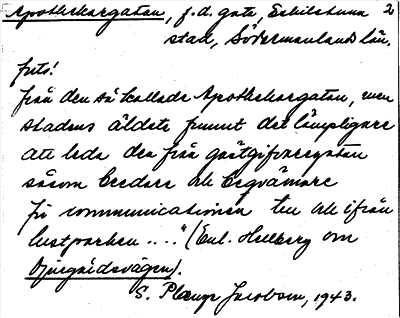 Apothekargatan, f.d. gata, Eskilstuna 2
stad, Södermanlands län.
foto!
från den så kallade Apothekargatan, men
stadens äldste funnit det lämpligare
att leda den från gästgifvaregatan
såsom bredare och beqvämare
för communicationen till och ifrån
lustparken ...." (Enl. Hellberg om
Djurgårdsvägen).
S. Plænge Jacobson, 1943.